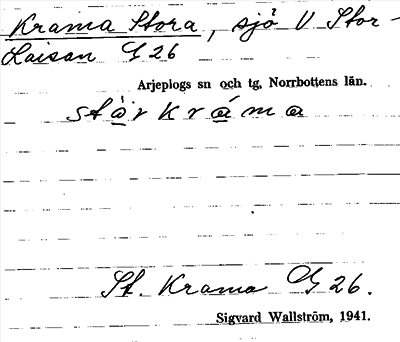 Krama Stora, sjö V Stor-
Laisan G 26
Arjeplogs sn och tg, Norrbottens län.
stårkráma
St. Krama G 26.
Sigvard Wallström, 1941.